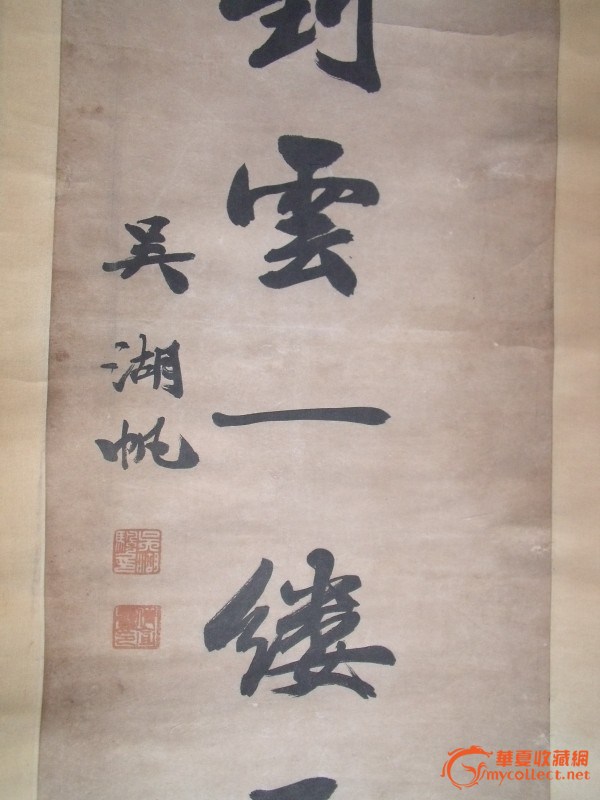 雲一縷
吳湖帆
華夏收藏網
mycollect.net